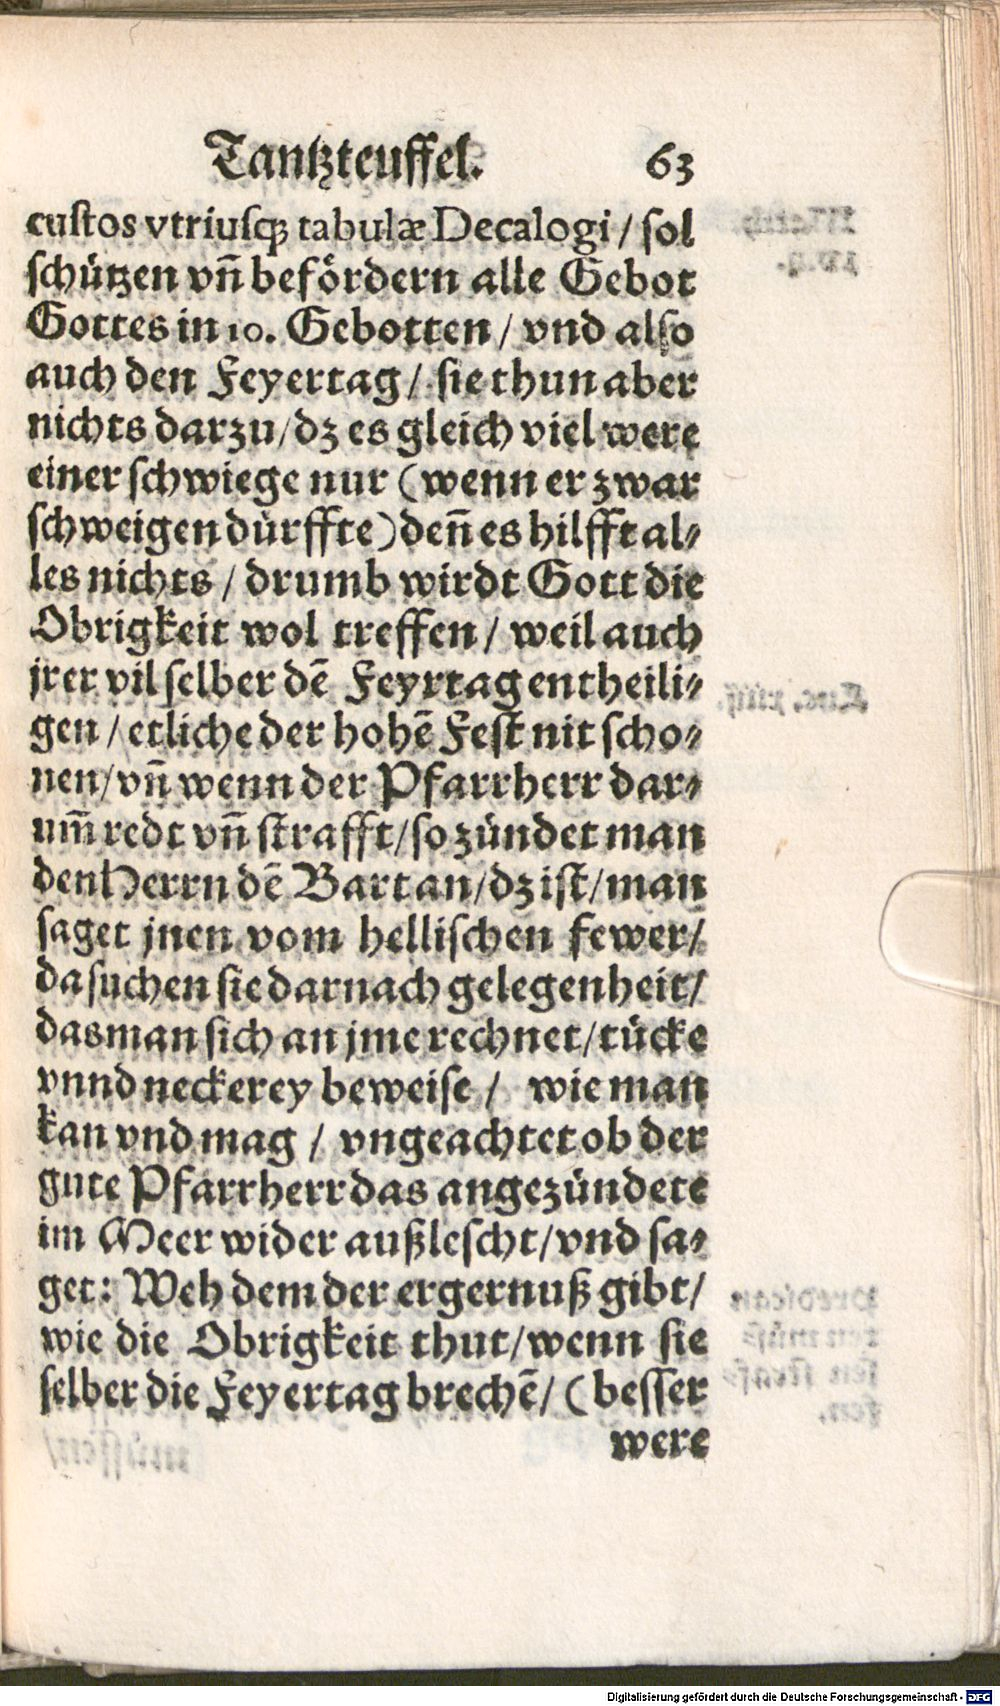 Tantzteuffel. 63
custos vtriusq; tabulæ Decalogi / sol
schützen vñ befördern alle Gebot
Gottes in 10. Gebotten / vnd also
auch den Feyertag / sie thun aber
nichts darzu / dz es gleich viel were
einer schwiege nur (wenn er zwar
schweigen dürffte) deñ es hilfft al⸗
les nichts / drumb wirdt Gott die
Obrigkeit wol treffen / weil auch
jrer vil selber dē Feyrtag entheili⸗
gen / etliche der hohē Fest nit scho⸗
nen / vñ wenn der Pfarrherr dar⸗
um̃ redt vñ strafft / so zündet man
den Herrn dē Bart an / dz ist / man
saget jnen vom hellischen fewer /
da suchen sie darnach gelegenheit /
das man sich an jme rechnet / tücke
vnnd neckerey beweise / wie man
kan vnd mag / vngeachtet ob der
gute Pfarrherr das angezündete
im Meer wider außlescht / vnd sa⸗
get: Weh dem der ergernuß gibt /
wie die Obrigkeit thut / wenn sie
selber die Feyertag brechē / (besser
were
Digitalisierung gefördert durch die Deutsche Forschungsgemeinschaft - DFG